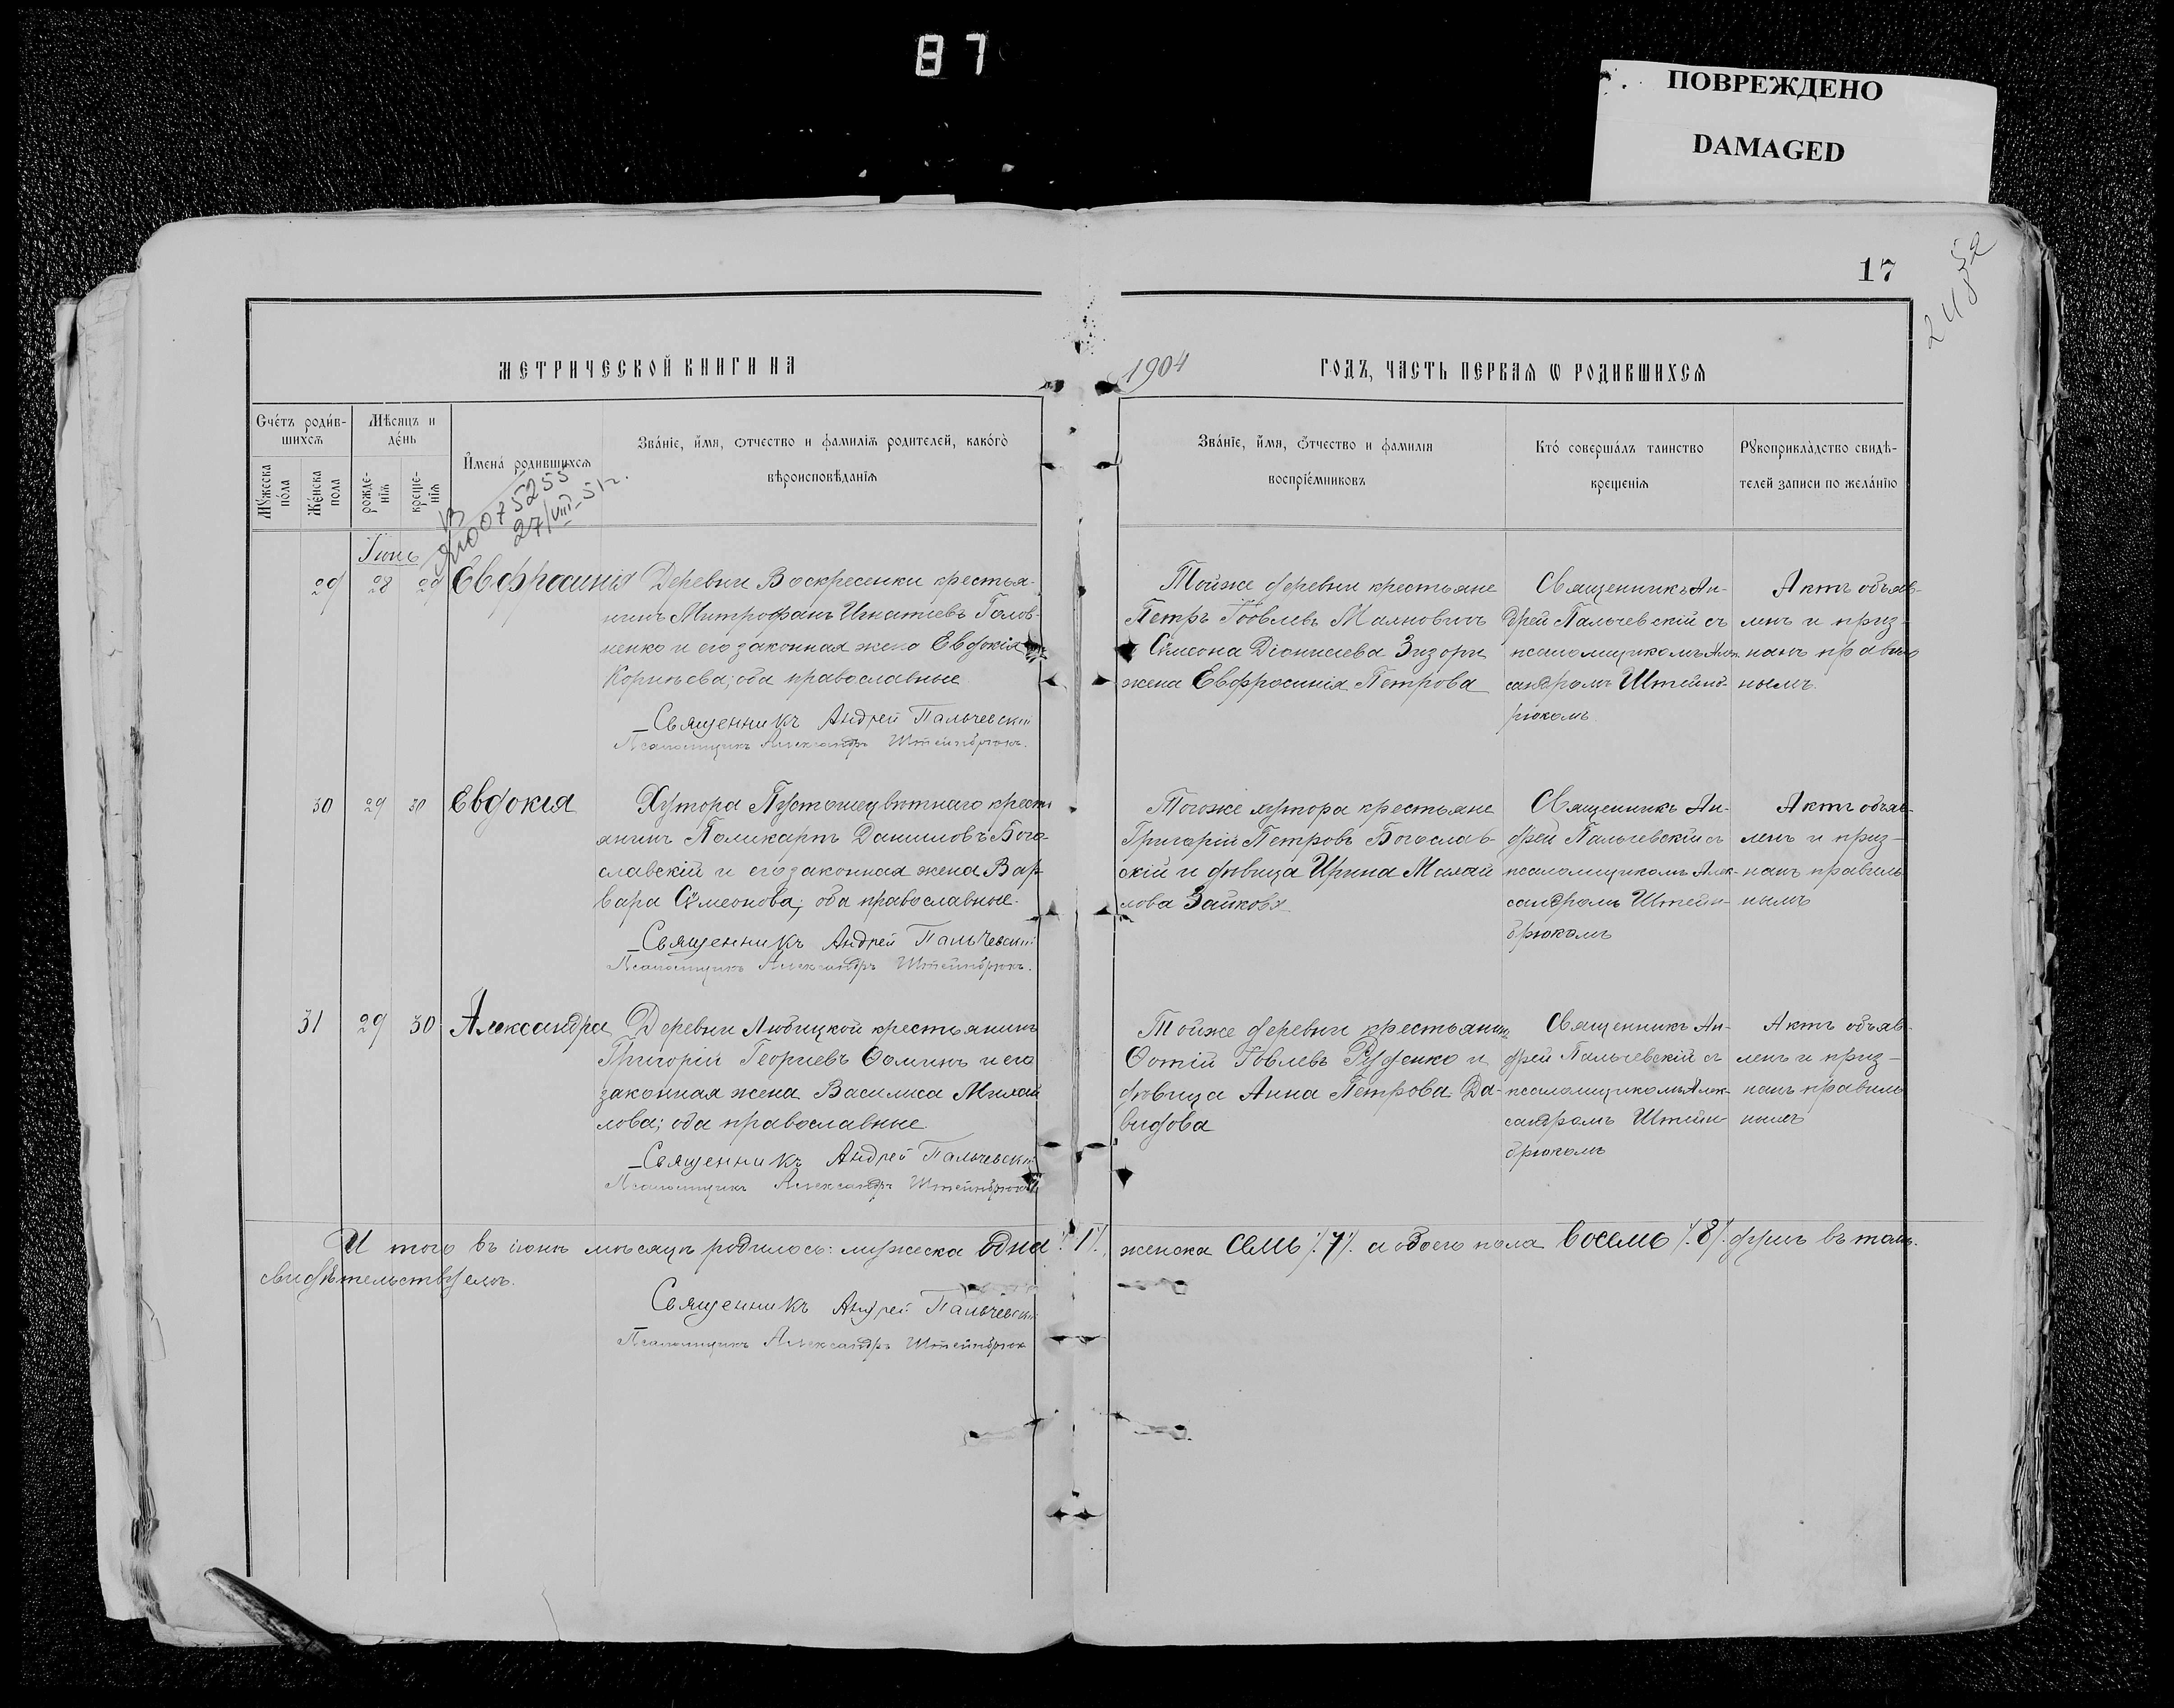 87
ПОВРЕЖДЕНО
DAMAGED
17
МЕТРИЧЕСКОЙ КНИГИ НА
1904
ГОДЪ, ЧАСТЬ ПЕРВАѦ Ѡ РОДИВШИХСѦ
Счéтъ роди́в-
шихсѧ
Мѣсяцъ и
дéнь
Мꙋ́жеска
по́ла
Же́нска
пола
рожде-
нїѧ
креще-
нїѧ
И҆мена́ родившихсѧ
Зва́нїе, и҆́мѧ, ѻтчество и фамилїѧ родителей, како́гѡ
вѣроисповѣданїѧ
Зва́нїе, и҆́мѧ, ѻтчество и фамилїѧ
воспрїе́мниковъ
Кто́ соверша́лъ таинство
крещенїѧ
Рꙋкоприкла́дство свидѣ-
телей записи по жела́нїю
27/VIII-51г.
Іюнь
29 28 29 Евфросинія
Деревни Воскресенки крестья-
нинъ Митрофанъ Игнатіевъ Голов-
ненко и его законная жена Евдокія
Корніева; оба православные
Священникъ Андрей Пальчевскій
Псаломщикъ Александръ Штейнбрюкъ.
Тойже деревни крестьяне
Петръ Іовлевъ
Сѵмеона Діонисіева
жена Евфросинія Петрова
Священникъ Ан-
дрей Пальчевскій съ
псаломщикомъ Алек-
сандромъ Штейнб-
рюкомъ
Актъ объяв-
ленъ и приз-
нанъ правиль
нымъ.
30 29 30 Евдокія
Хутора Пустошецвѣтнаго крестъ
янинъ Поликарпъ Даниловъ Бого-
славскій и его законная жена Вар-
вара Сѵмеонова; оба православные.
Священникъ Андрей Пальчевскій
Псаломщикъ Александръ Штейнбрюкъ.
Тогоже хутора крестьяне
Григорій Петровъ Богослав-
скій и дѣвица Ирина Михай
лова Зайкова
Священникъ Ан-
дрей Пальчевскій съ
псаломщикомъ Алек-
сандромъ Штейн-
брюкомъ
Актъ объяв-
ленъ и приз-
нанъ правиль
нымъ
31 29 30 Александра
Деревни Любицкой крестьянинъ
Григорій Георгіевъ Ѳоминъ и его
законная жена Василиса Михай
лова; оба православные
Священникъ Андрей Пальчевскій
Псаломщикъ Александръ Штейнбрюкъ
Тойже деревни крестьянинъ
Ѳотій Іовлевъ Руденко и
дѣвица Анна Петрова Да-
видова
Священникъ Ан-
дрей Пальчевскій съ
псаломщикомъ Алек-
сандромъ Штейн
брюкомъ
Актъ объяв-
ленъ и приз-
нанъ правиль
нымъ
И того въ іюнѣ мѣсяцѣ родилось: мужеска одна ./.1./. женска семь ./.7./. а обоего пола восемь ./.8./. душъ въ томъ.
свидѣтельствуемъ.
Священникъ Андрей Пальчевскій
Псаломщикъ Александръ Штейнбрюкъ